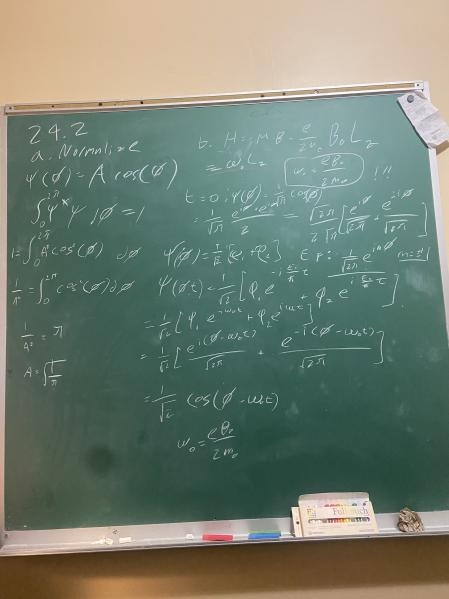 24.2
a. Normalize
Ψ(φ) = A cos(φ)
∫₀^{2π} Ψ* Ψ dφ = 1
1 = ∫₀^{2π} A² cos²(φ) dφ
1/A² = ∫₀^{2π} cos²(φ) dφ
1/A² = π
A = √(1/π)
b. H = -M·B = e/2m₀ B₀ L_z
= ω₀ L_z
ω₀ = eB₀/2m₀ !!!
t = 0 : Ψ(φ) = 1/√π cos(φ)
= 1/√π (e^{iφ} + e^{-iφ})/2 = √2π/2√π [e^{iφ}/√2π + e^{-iφ}/√2π]
Ψ(φ) = 1/√2 [φ₁ + φ₂] 1/√2π e^{imφ} m = ±1
Ψ(φ t) = 1/√2 [φ₁ e^{-i E₁/ħ t} + φ₂ e^{-i E₂/ħ t}]
= 1/√2 [φ₁ e^{-iω₀t} + φ₂ e^{iω₀t}]
= 1/√2 [e^{i(φ-ω₀t)}/√2π + e^{-i(φ-ω₀t)}/√2π]
= 1/√π cos(φ-ω₀t)
ω₀ = eB₀/2m₀